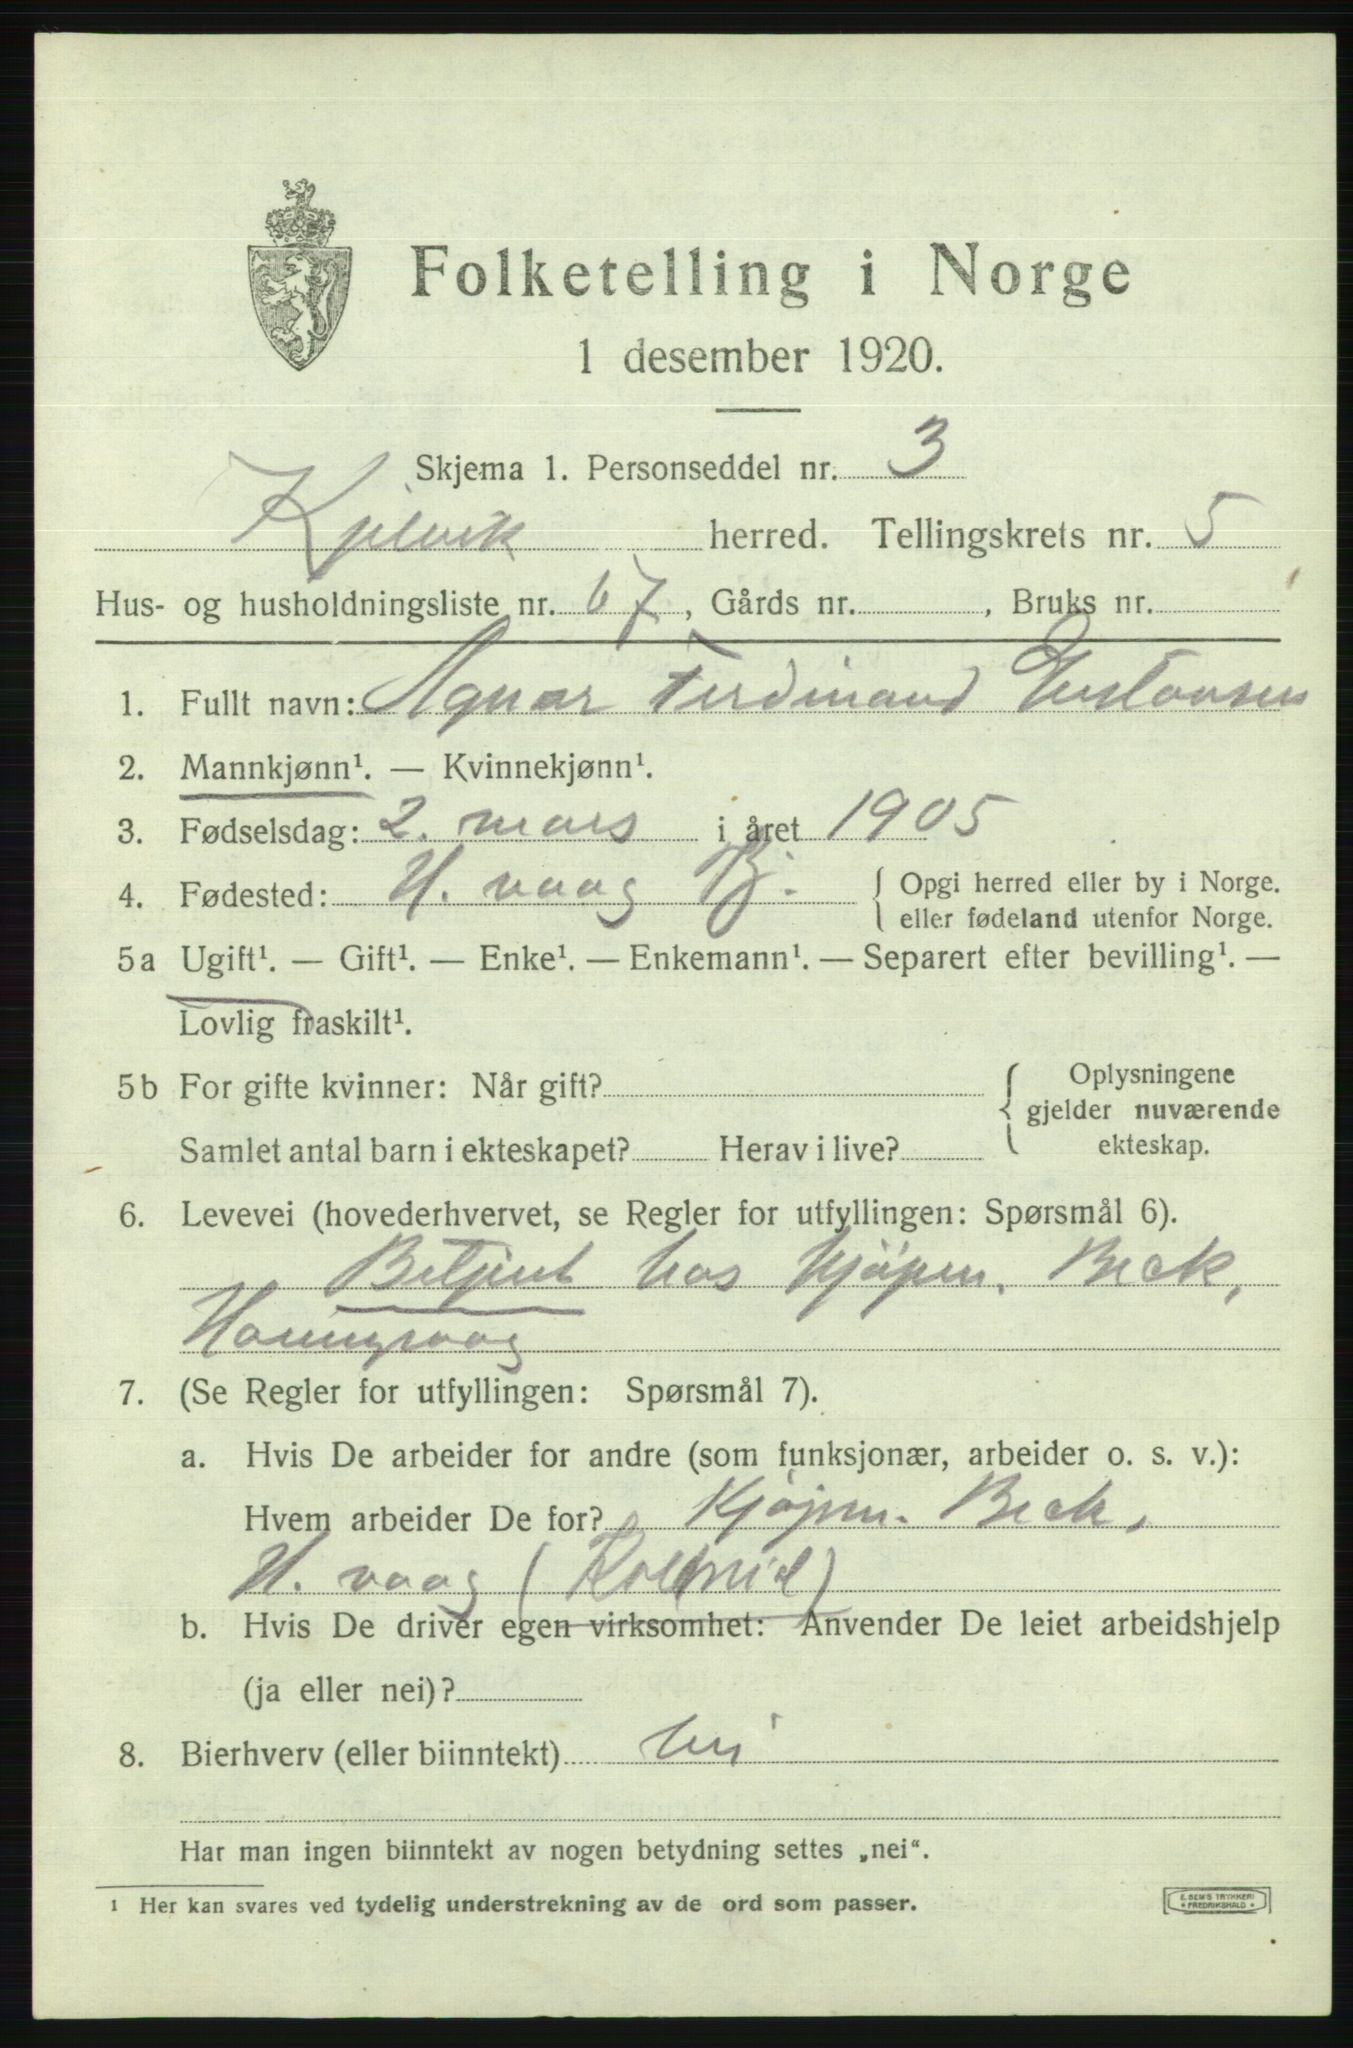 Folketelling i Norge
1 desember 1920.
Skjema 1. Personseddel nr. 3
Kjelvik herred. Tellingskrets nr. 5
Hus- og husholdningsliste nr. 67, Gårds nr. , Bruks nr.
1. Fullt navn: Agnar Ferdinand Gustavsen
2. Mannkjønn¹. — Kvinnekjønn¹.
3. Fødselsdag: 2. mars i året 1905
4. Fødested: H. vaag Kj. { Opgi herred eller by i Norge.
eller fødeland utenfor Norge.
5a Ugift¹. — Gift¹. — Enke¹. — Enkemann¹. — Separert efter bevilling¹. —
Lovlig fraskilt¹.
5b For gifte kvinner: Når gift? { Oplysningene
gjelder nuværende
Samlet antal barn i ekteskapet? Herav i live? ekteskap.
6. Levevei (hovederhvervet, se Regler for utfyllingen: Spørsmål 6).
Betjent hos kjøpm. Beck,
Honningsvaag
7. (Se Regler for utfyllingen: Spørsmål 7).
a. Hvis De arbeider for andre (som funksjonær, arbeider o. s. v.):
Hvem arbeider De for? Kjøpm. Beck,
H. vaag (
b. Hvis De driver egen virksomhet: Anvender De leiet arbeidshjelp
(ja eller nei)?
8. Bierhverv (eller biinntekt) nei
Har man ingen biinntekt av nogen betydning settes „nei“.
¹ Her kan svares ved tydelig understrekning av de ord som passer.
E. SEM'S TRYKKERI
* FREDRIKSHALD *